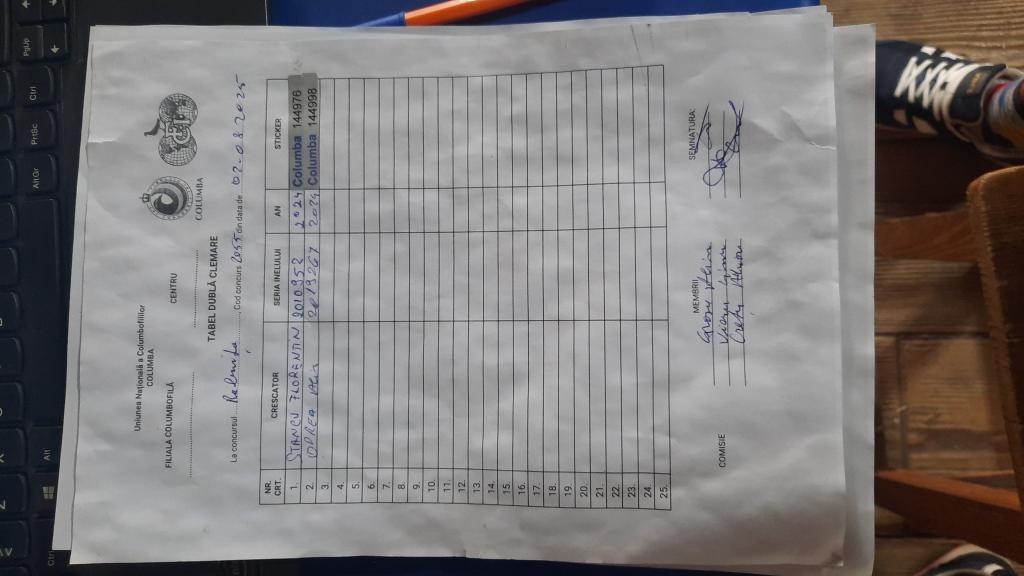 Uniunea Națională a Columbofililor
COLUMBA
COLUMBA
FILIALA COLUMBOFILĂ
CENTRU
TABEL DUBLĂ CLEMARE
La concursul Cod concurs din data de 02.08.2025
NR. CRT. CRESCATOR SERIA INELULUI AN STICKER
1. STANCU FLORENTIN 2010952 2024 Columba 144976
2. ODREA 2024 Columba 144998
3.
4.
5.
6.
7.
8.
9.
10.
11.
12.
13.
14.
15.
16.
17.
18.
19.
20.
21.
22.
23.
24.
25.
COMISIE
MEMBRII
SEMNATURA:
PgUp
Ctrl
PrtSc
Alt Gr
Alt
Ctrl